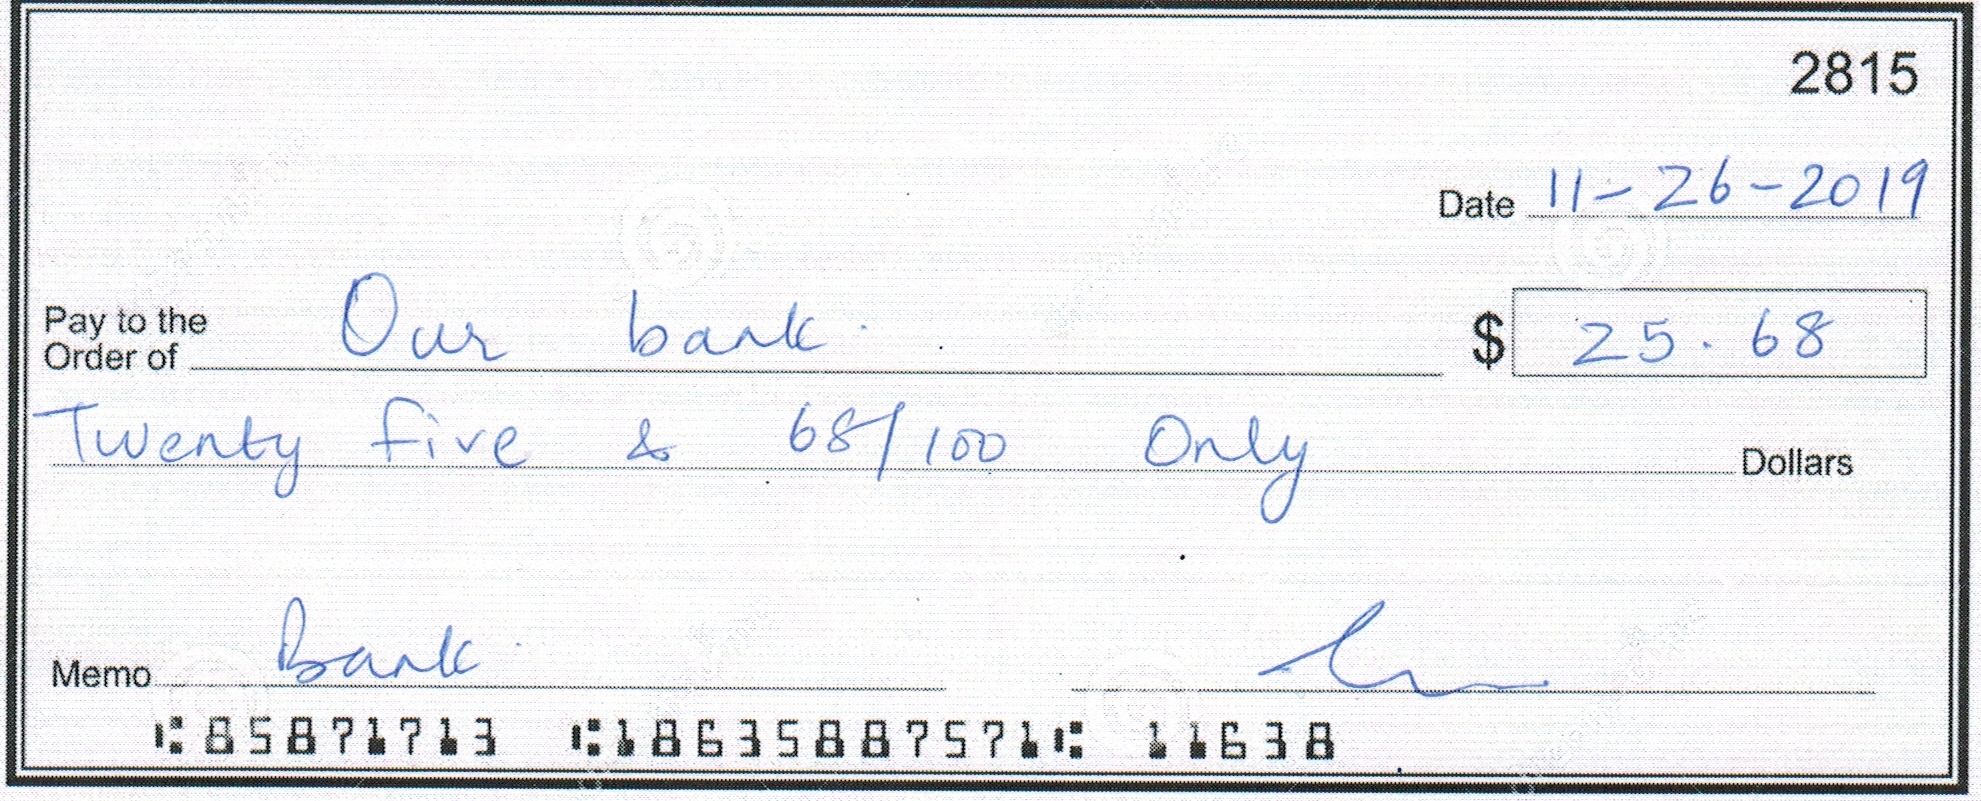 2815
Date 11-26-2019
Pay to the
Order of Our bank. $ 25.68
Twenty five & 68/100 Only Dollars
Memo Bank.
⑆85871713 ⑆18635887571⑆ 11638